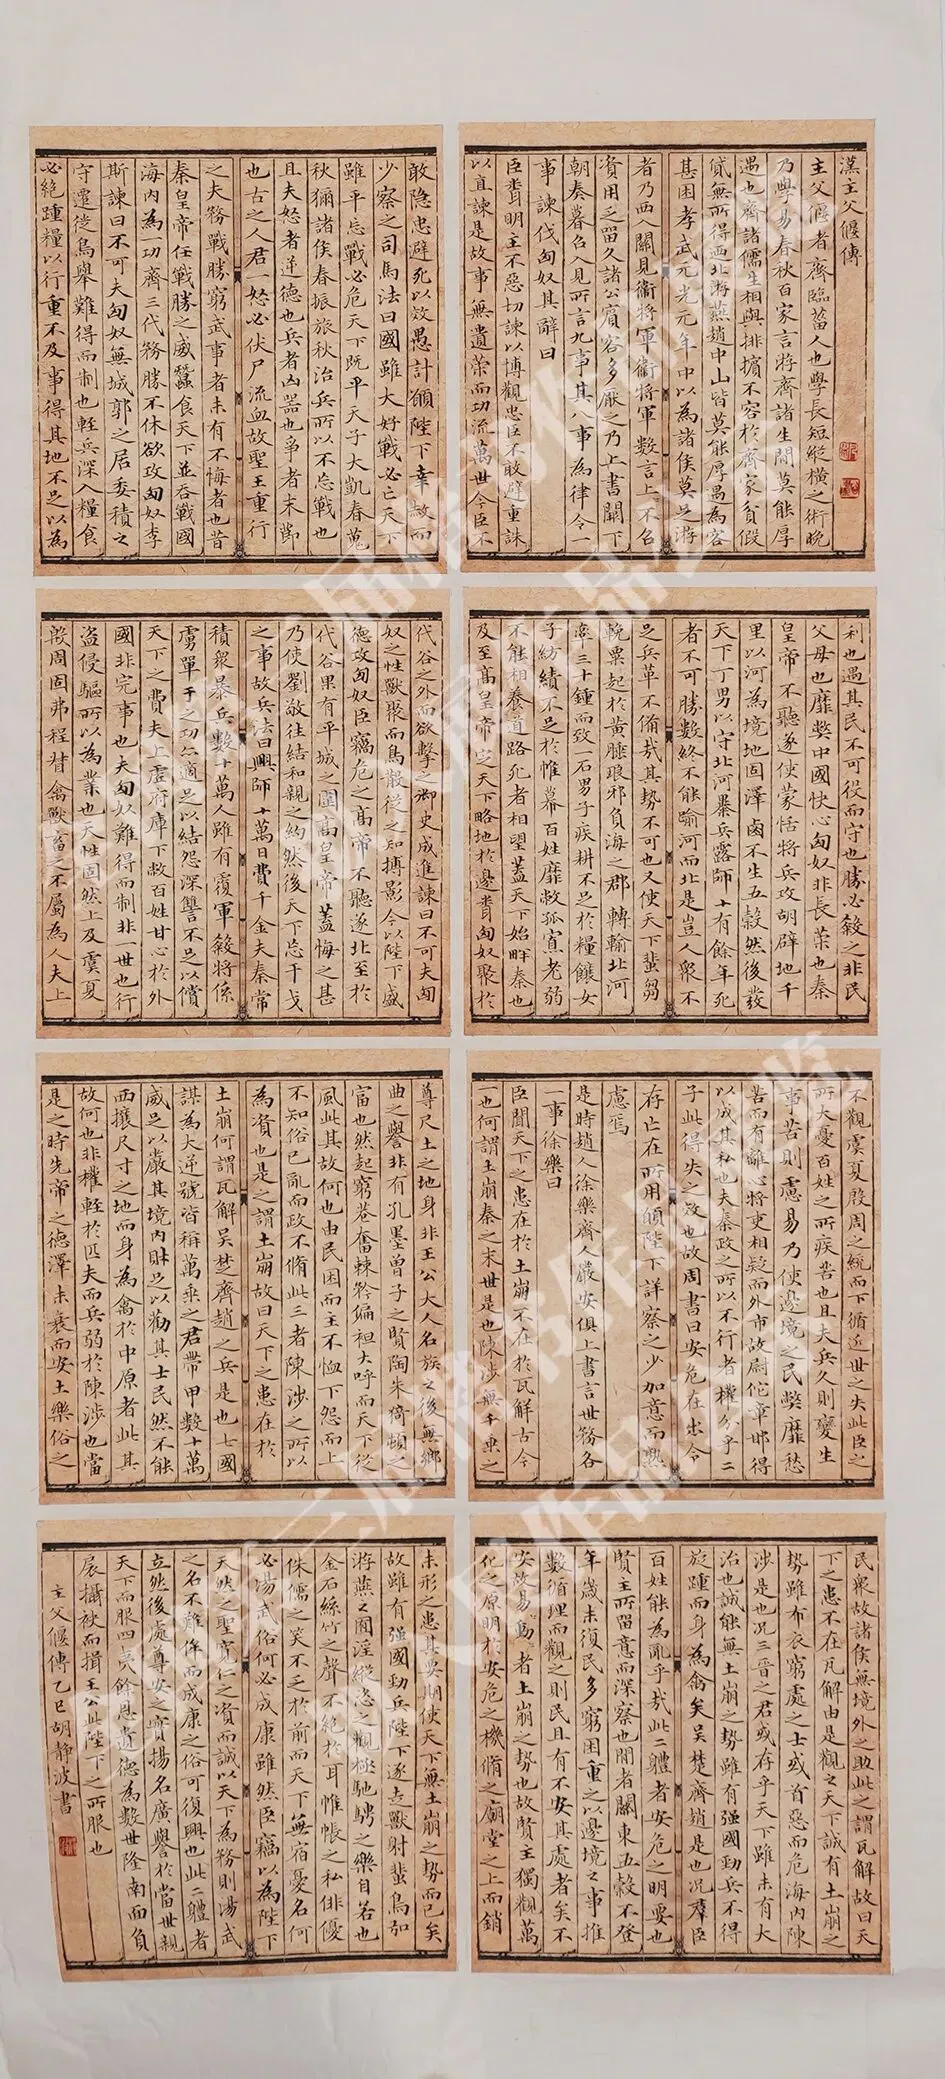 漢主父偃傳
主父偃者齊臨菑人也學長短縱橫之術晚
乃學易春秋百家言游齊諸生間莫能厚
遇也齊諸儒生相與排擯不容於齊家貧假
貸無所得西北游燕趙中山皆莫能厚為客
甚困孝武元光元年中以為諸侯莫足游
者乃西關見衞將軍衞將軍數言上不召
資用乏留久諸公賓客多厭之乃上書闕下
朝奏暮召入見所言九事其八事為律令一
事諫伐匈奴其辭曰
臣聞明主不惡切諫以博觀忠臣不敢避重誅
以直諫是故事無遺策而功流萬世今臣不
敢隐忠避死以效愚計願陛下幸赦而
少察之司馬法曰國雖大好戰必亡天下
雖平忘戰必危天下既平天子大凱春蒐
秋獮諸侯春振旅秋治兵所以不忘戰也
且夫怒者逆德也兵者凶器也爭者末節
也古之人君一怒必伏尸流血故聖王重行
之夫務戰勝窮武事者未有不悔者也昔
秦皇帝任戰勝之威蠶食天下並吞戰國
海内為一功齊三代務勝不休欲攻匈奴李
斯諫曰不可夫匈奴無城郭之居委積之
守遷徙鳥舉難得而制也輕兵深入糧食
必絶踵糧以行重不及事得其地不足以為
利也遇其民不可役而守也勝必殺之非民
父母也靡獘中國快心匈奴非長策也秦
皇帝不聽遂使蒙恬將兵攻胡辟地千
里以河為境地固澤鹵不生五穀然後發
天下丁男以守北河暴兵露師十有餘年死
者不可勝數終不能踰河而北是豈人衆不
足兵革不備哉其勢不可也又使天下蜚芻
輓粟起於黄腄琅邪負海之郡轉輸北河
率三十鍾而致一石男子疾耕不足於糧饟女
子紡績不足於帷幕百姓靡敝孤寡老弱
不能相養道路死者相望蓋天下始畔秦也
及至高皇帝定天下略地於邊聞匈奴聚於
代谷之外而欲擊之御史成進諫曰不可夫匈
奴之性獸聚而鳥散從之如搏影今以陛下盛
德攻匈奴臣竊危之高帝不聽遂北至於
代谷果有平城之圍高皇帝蓋悔之甚
乃使劉敬往結和親之約然後天下忘干戈
之事故兵法曰興師十萬日費千金夫秦常
積衆暴兵數十萬人雖有覆軍殺將係
虜單于之功亦適足以結怨深讐不足以償
天下之費夫上虚府庫下敝百姓甘心於外
國非完事也夫匈奴難得而制非一世也行
盜侵驅所以為業也天性固然上及虞夏
殷周固弗程督禽獸畜之不屬為人夫上
不觀虞夏殷周之統而下循近世之失此臣之
所大憂百姓之所疾苦也且夫兵久則變生
事苦則慮易乃使邊境之民獘靡愁
苦而有離心將吏相疑而外市故尉佗章邯得
以成其私也夫秦政之所以不行者權分乎二
子此得失之效也故周書曰安危在出令
存亡在所用願陛下詳察之少加意而熟
慮焉
是時趙人徐樂齊人嚴安俱上書言世務各
一事徐樂曰
臣聞天下之患在於土崩不在於瓦解古今
一也何謂土崩秦之末世是也陳涉無千乘之
尊尺土之地身非王公大人名族之後無鄉
曲之譽非有孔墨曾子之賢陶朱猗頓之
富也然起窮巷奮棘矜偏袒大呼而天下從
風此其故何也由民困而主不恤下怨而上
不知俗已亂而政不脩此三者陳涉之所以
為資也是之謂土崩故曰天下之患在於
土崩何謂瓦解吴楚齊趙之兵是也七國
謀為大逆號皆稱萬乘之君帶甲數十萬
威足以嚴其境内財足以勸其士民然不能
西攘尺寸之地而身為禽於中原者此其
故何也非權輕於匹夫而兵弱於陳涉也當
是之時先帝之德澤未衰而安土樂俗之
民衆故諸侯無境外之助此之謂瓦解故曰天
下之患不在瓦解由是觀之天下誠有土崩之
勢雖布衣窮處之士或首惡而危海内陳
涉是也况三晉之君或存乎天下雖未有大
治也誠能無土崩之勢雖有强國勁兵不得
旋踵而身為禽矣吴楚齊趙是也况羣臣
百姓能為亂乎哉此二體者安危之明要也
賢主所留意而深察也間者關東五穀不登
年歲未復民多窮困重之以邊境之事推
數循理而觀之則民且有不安其處者矣不
安故易動易動者土崩之勢也故賢主獨觀萬
化之原明於安危之機脩之廟堂之上而銷
未形之患其要期使天下無土崩之勢而已矣
故雖有强國勁兵陛下逐走獸射蜚鳥弘
游燕之囿淫縱恣之觀極馳騁之樂自若也
金石絲竹之聲不絶於耳帷帳之私俳優
侏儒之笑不乏於前而天下無宿憂名何
必湯武俗何必成康雖然臣竊以為陛下
天然之聖寛仁之資而誠以天下為務則湯武
之名不難侔而成康之俗可復興也此二體者
立然後處尊安之實揚名廣譽於當世親
天下而服四夷餘恩遺德為數世隆南面負
扆攝袂而揖王公此陛下之所服也
主父偃傳乙巳胡静波書